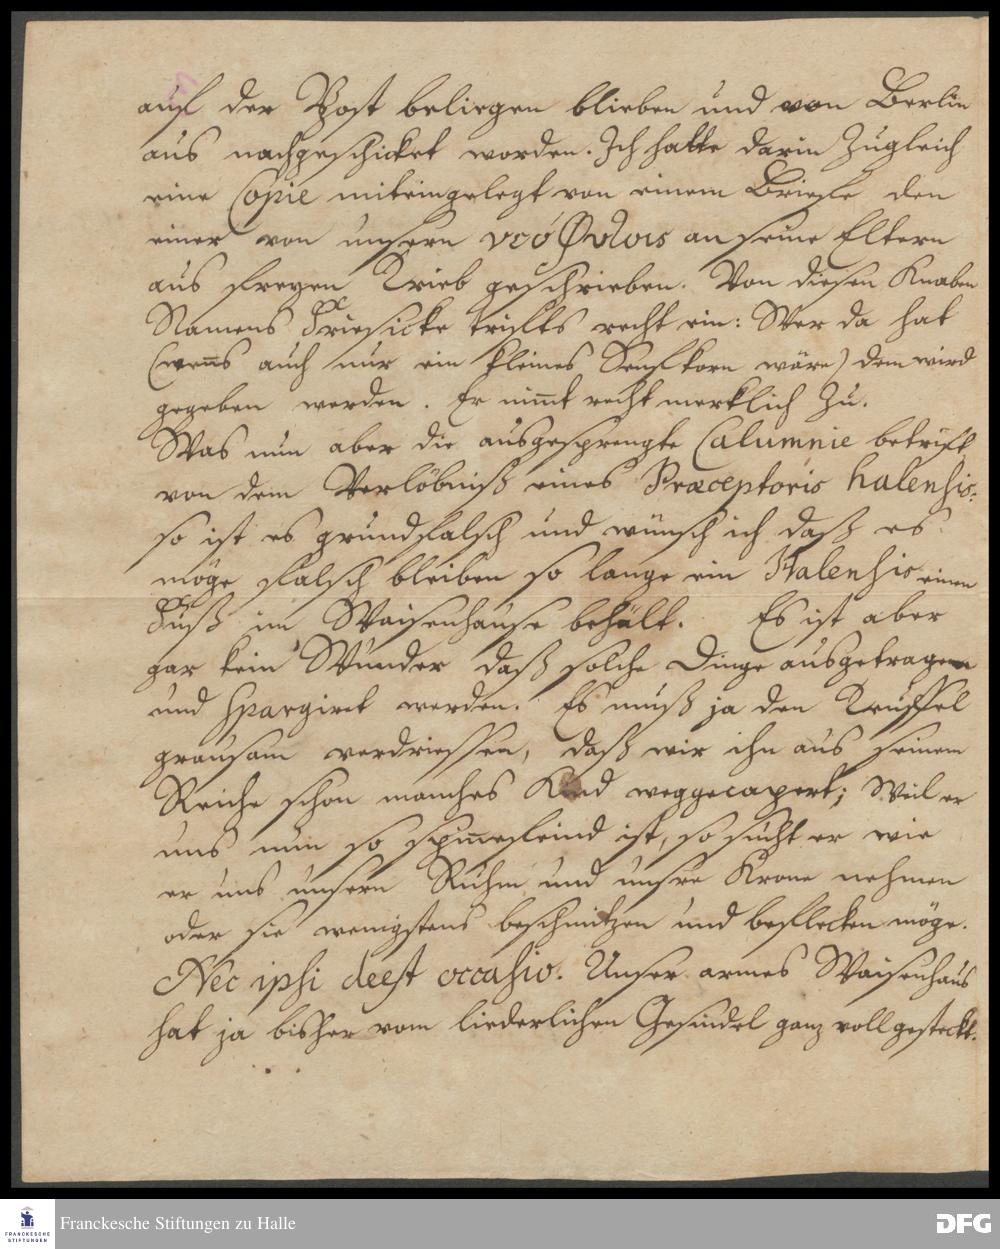 auf der Post beliegen blieben und von Berlin
aus nachgeschicket worden. Ich hatte darin zugleich
eine Copie miteingelegt von einem Briefe den
einer von unsern νεόφυτοις an seine Eltern
aus freyen Trieb geschrieben. Von diesen Knaben
Namens Friesicke triffts recht ein: Wer da hat
(wen̄s auch nur ein kleines Senfkorn wäre) dem wird
gegeben werden. Er nim̄t recht merklich zu.
Was nun aber die ausgesprengte Calumnie betrift
von dem Verlöbniß eines Præceptoris halensis:
so ist es grundfalsch und wünsch ich daß es
möge falsch bleiben so lange ein Halensis einen
Fuß im Waisenhause behält. Es ist aber
gar kein Wunder daß solche Dinge ausgetragen
und spargiret werden. Es muß ja den Teuffel
grausam verdriessen, daß wir ihn aus seinem
Reiche schon manches Kind weggecapert; Weil er
uns nun so spin̄efeind ist, so sucht er wie
er uns unsern Ruhm und unsre Krone nehmen
oder sie wenigstens beschmitzen und beflecken möge.
Nec ipsi deest occasio. Unser armes Waisenhaus
hat ja bisher vom liederlichen Gesindel ganz voll gesteckt.
Franckesche Stiftungen zu Halle
FRANCKESCHE
STIFTUNGEN
DFG